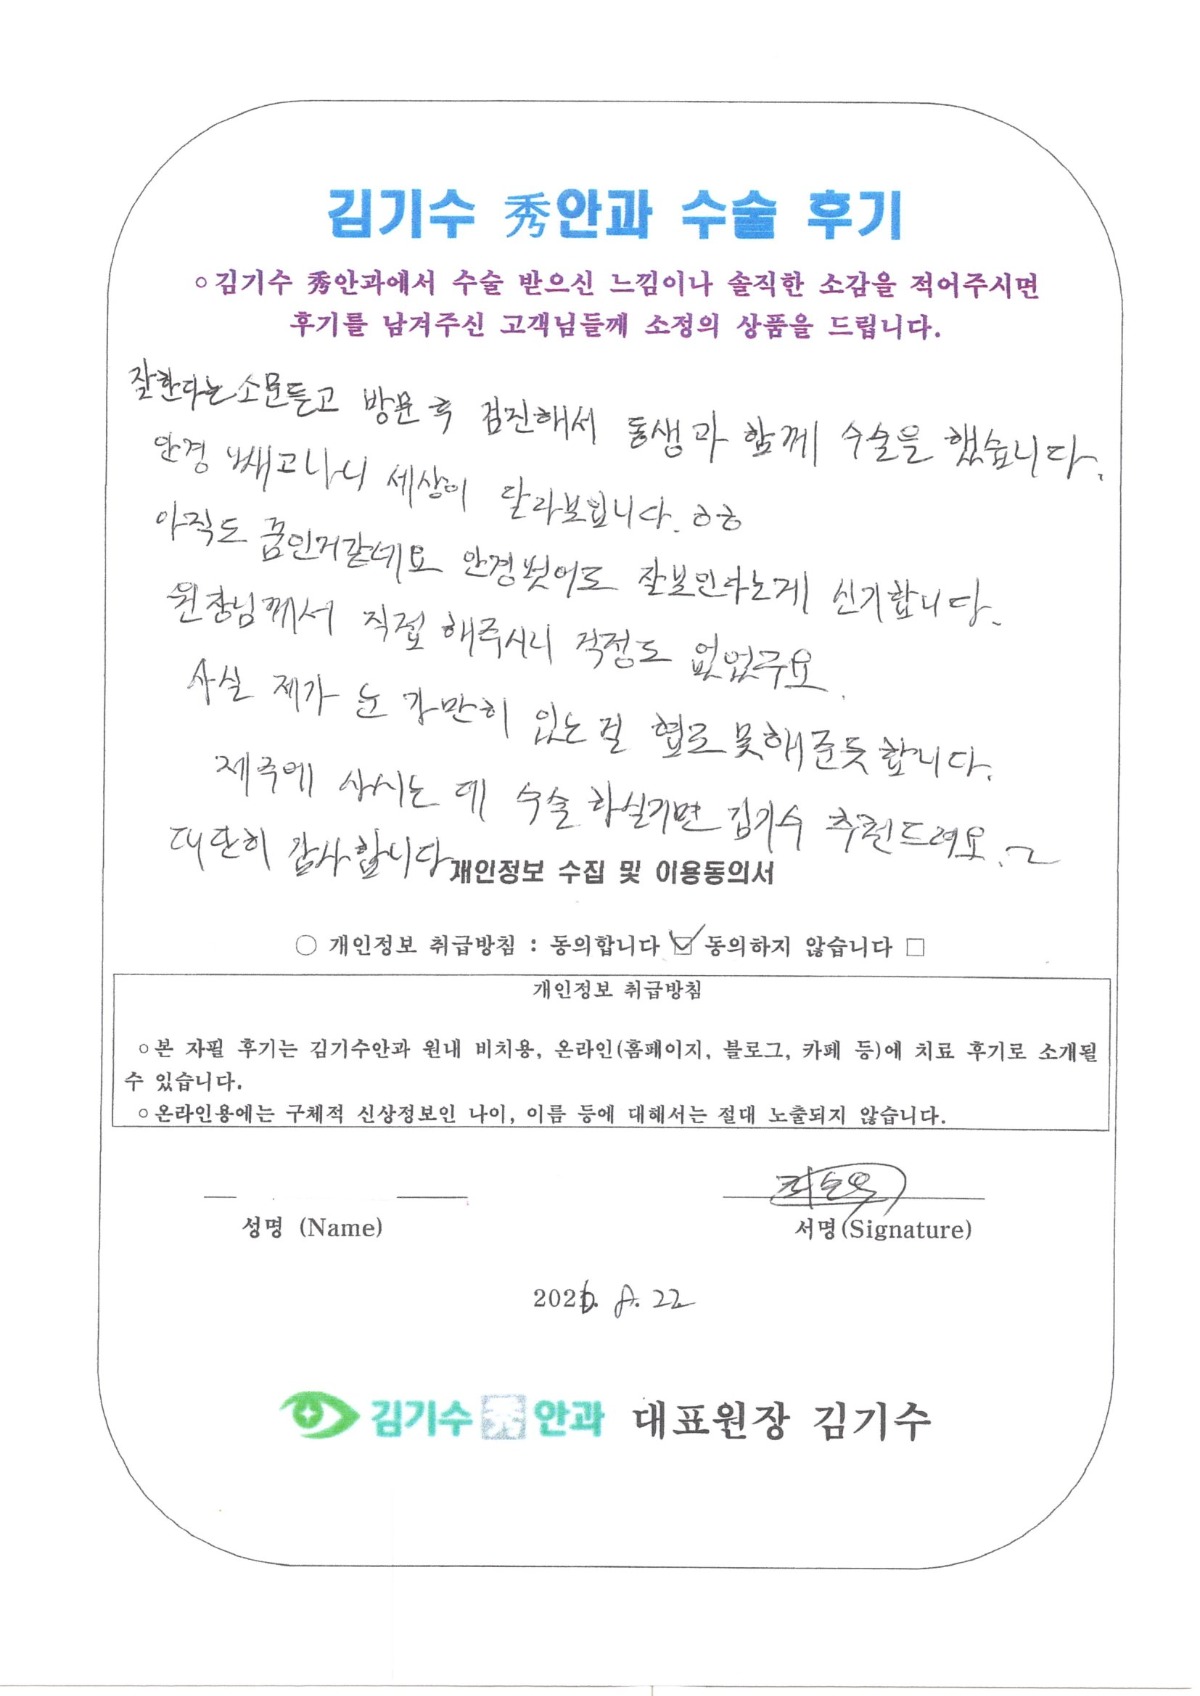 김기수 秀안과 수술 후기
○김기수 秀안과에서 수술 받으신 느낌이나 솔직한 소감을 적어주시면
후기를 남겨주신 고객님들께 소정의 상품을 드립니다.
잘한다는 소문듣고 방문 후 검진해서 동생과 함께 수술을 했습니다.
안경 빼고나니 세상이 달라보입니다. ㅎㅎ
아직도 꿈인거같네요 안경벗어도 잘보인다는게 신기합니다.
원장님께서 직접 해주시니 걱정도 없었구요.
사실 제가 눈 가만히 있는걸 협조 못해준듯 합니다.
제주에 사시는 데 수술 하실거면 김기수 추천드려요.~
대단히 감사합니다
개인정보 수집 및 이용동의서
○ 개인정보 취급방침 : 동의합니다 ☑ 동의하지 않습니다 □
개인정보 취급방침
○본 자필 후기는 김기수안과 원내 비치용, 온라인(홈페이지, 블로그, 카페 등)에 치료 후기로 소개될
수 있습니다.
○온라인용에는 구체적 신상정보인 나이, 이름 등에 대해서는 절대 노출되지 않습니다.
성명 (Name) 서명(Signature)
2026. 8. 22
김기수 秀 안과 대표원장 김기수